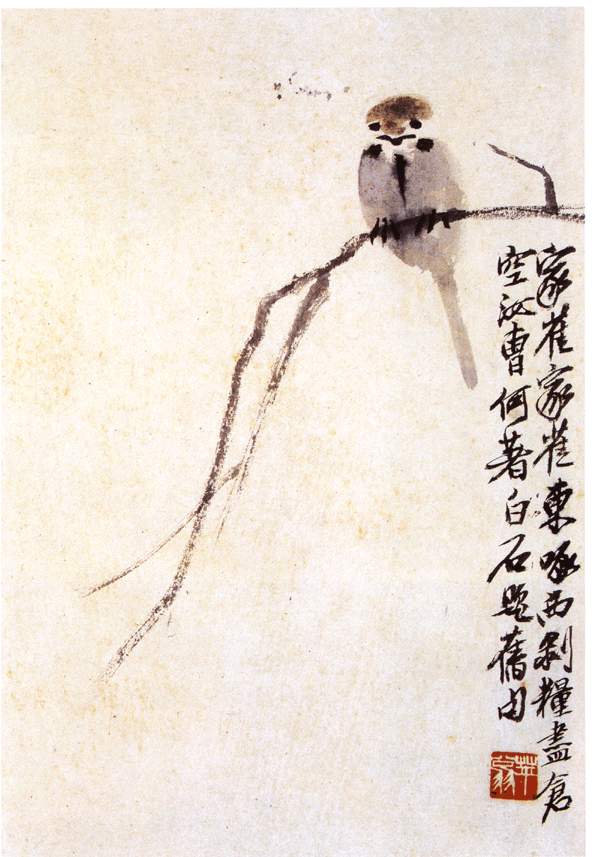 家雀家雀東啄西剝糧盡倉
空汝曹何著白石題舊句
苹翁